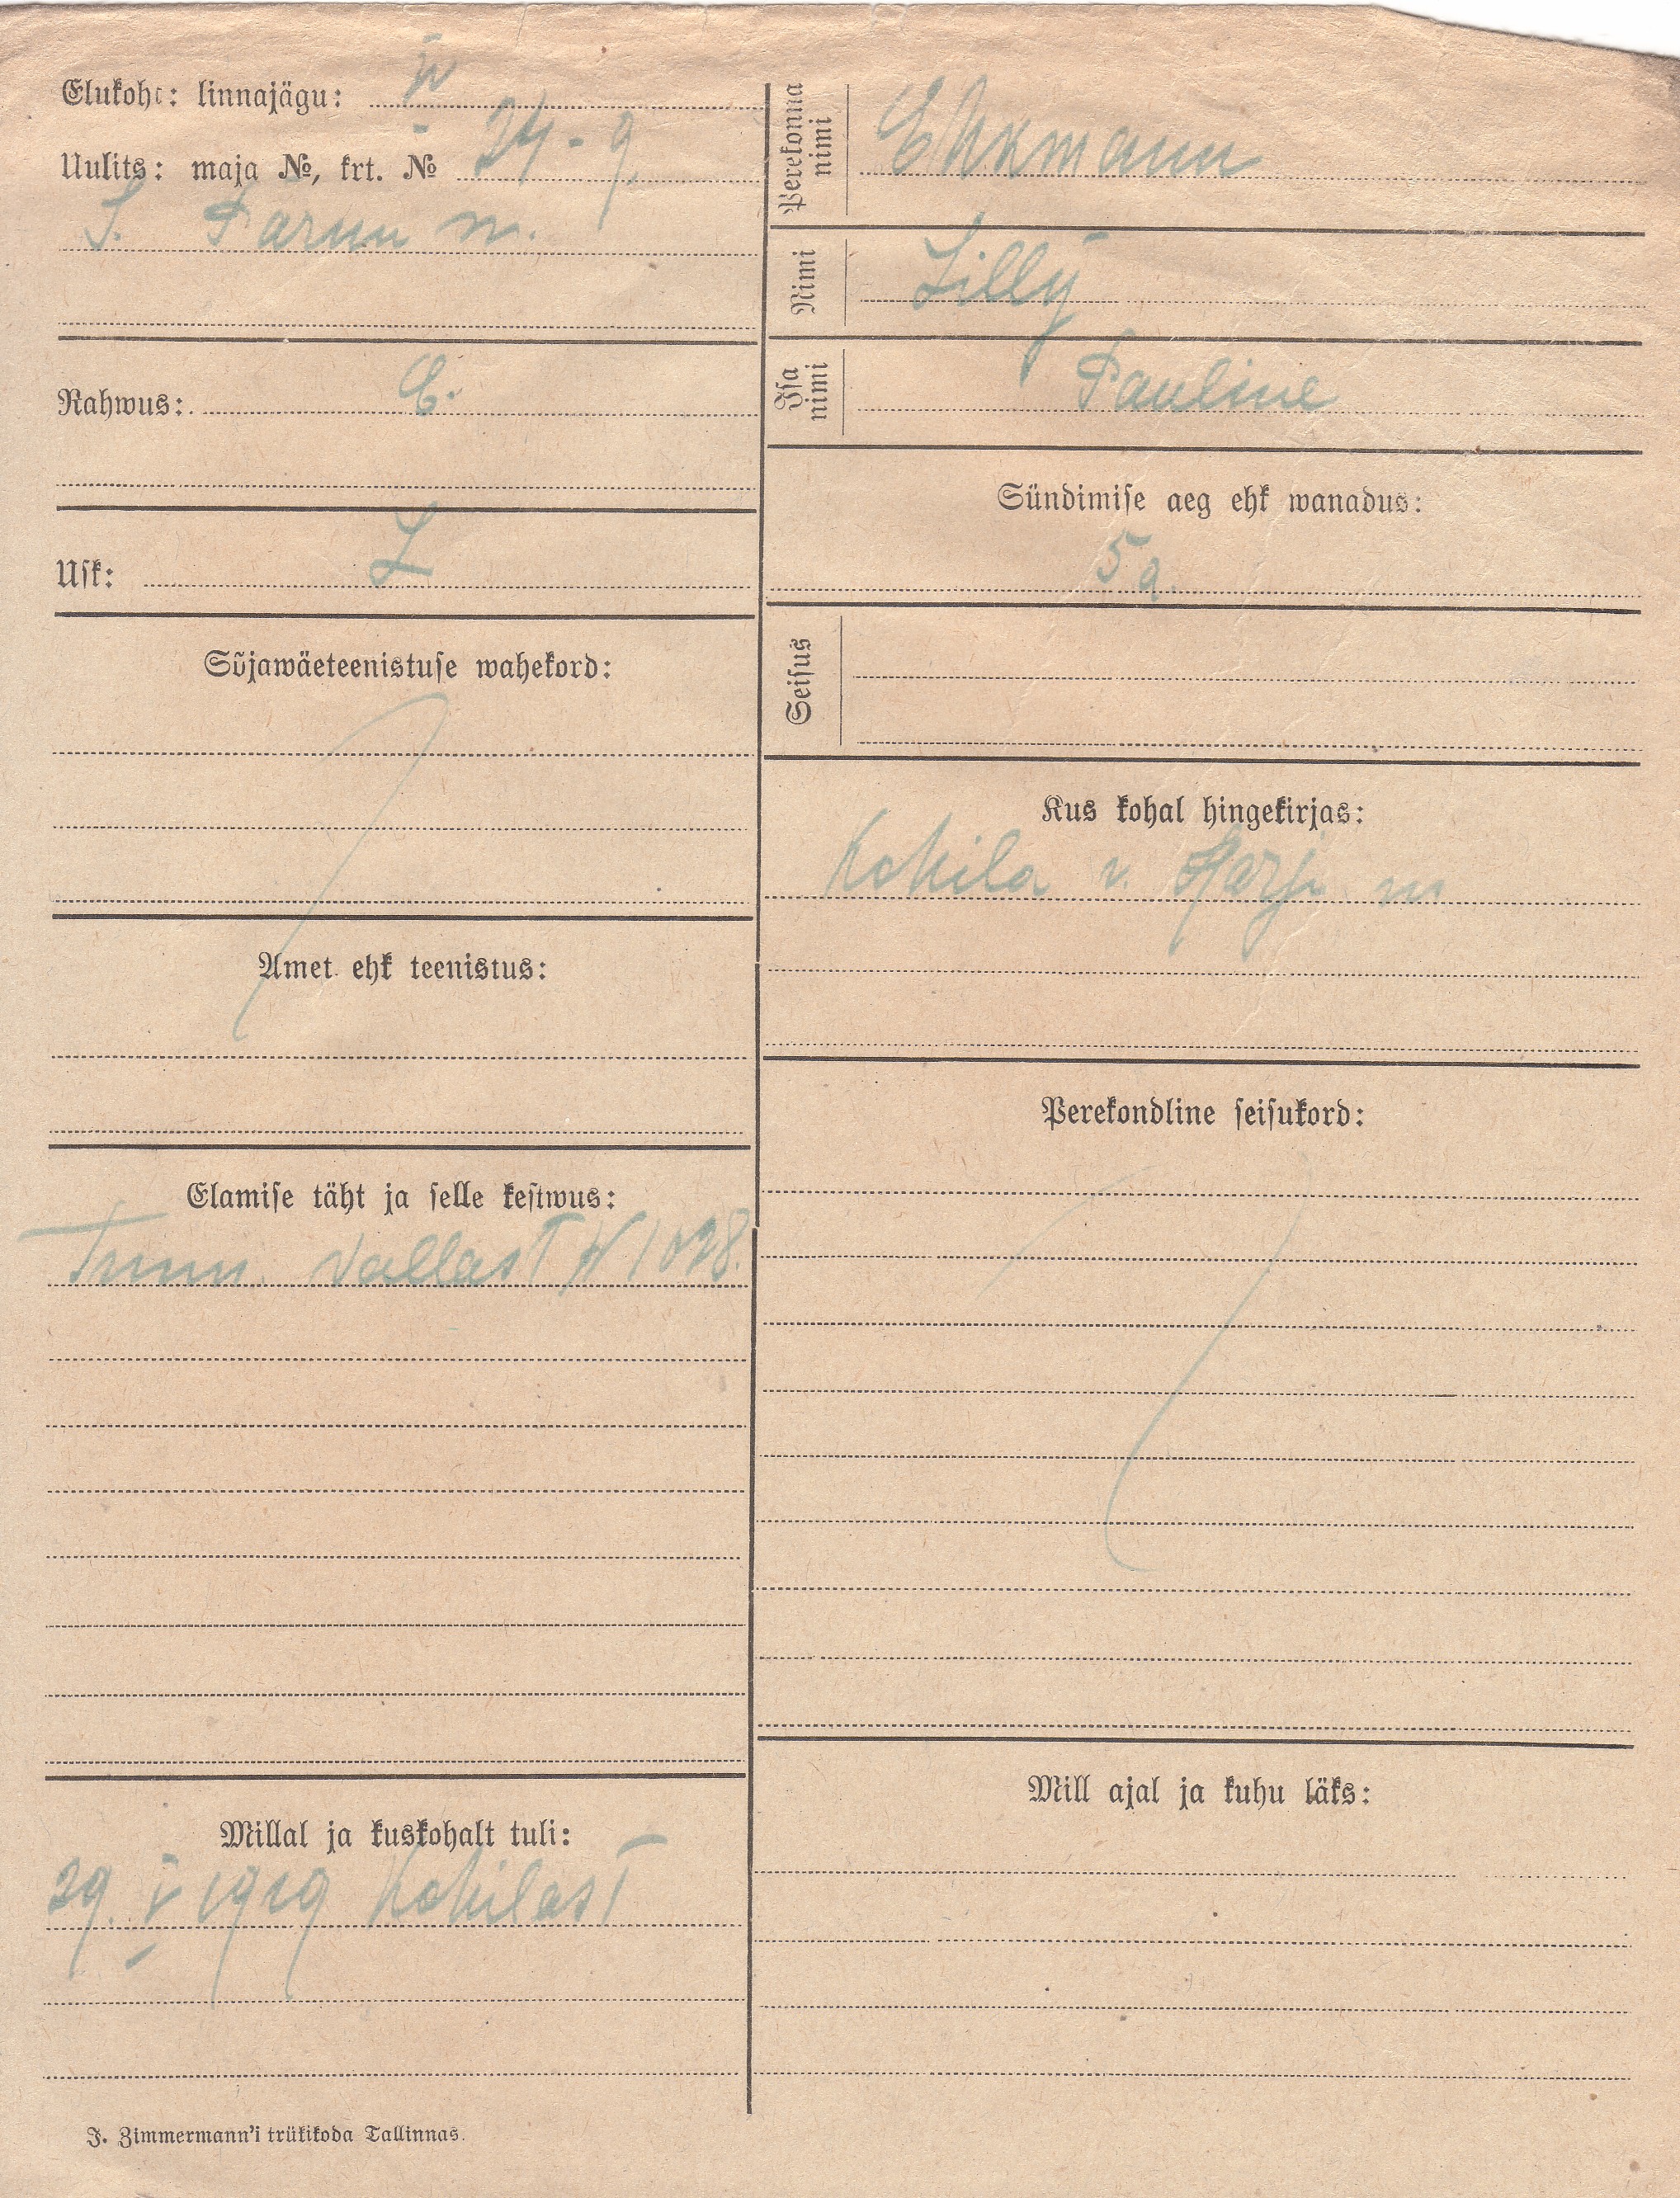 Elukoht: linnajägu: IV
Uulits: maja №, krt. № 24-9
S. Pärnu m.
Rahwus: E.
Usk: L
Sõjawäeteenistuse wahekord:
Amet ehk teenistus:
Elamise täht ja selle kestwus:
Tunn. Vallast № 1028.
Millal ja kuskohalt tuli:
29. V 1919 Kohilast
J. Zimmermann'i trükikoda Tallinnas.
Perekonna nimi Ehkmann
Nimi Lilly
Isa nimi Pauline
Sündimise aeg ehk wanadus:
5 a.
Seisus
Kus kohal hingekirjas:
Kohila v. Harju m
Perekondline seisukord:
Mill ajal ja kuhu läks: